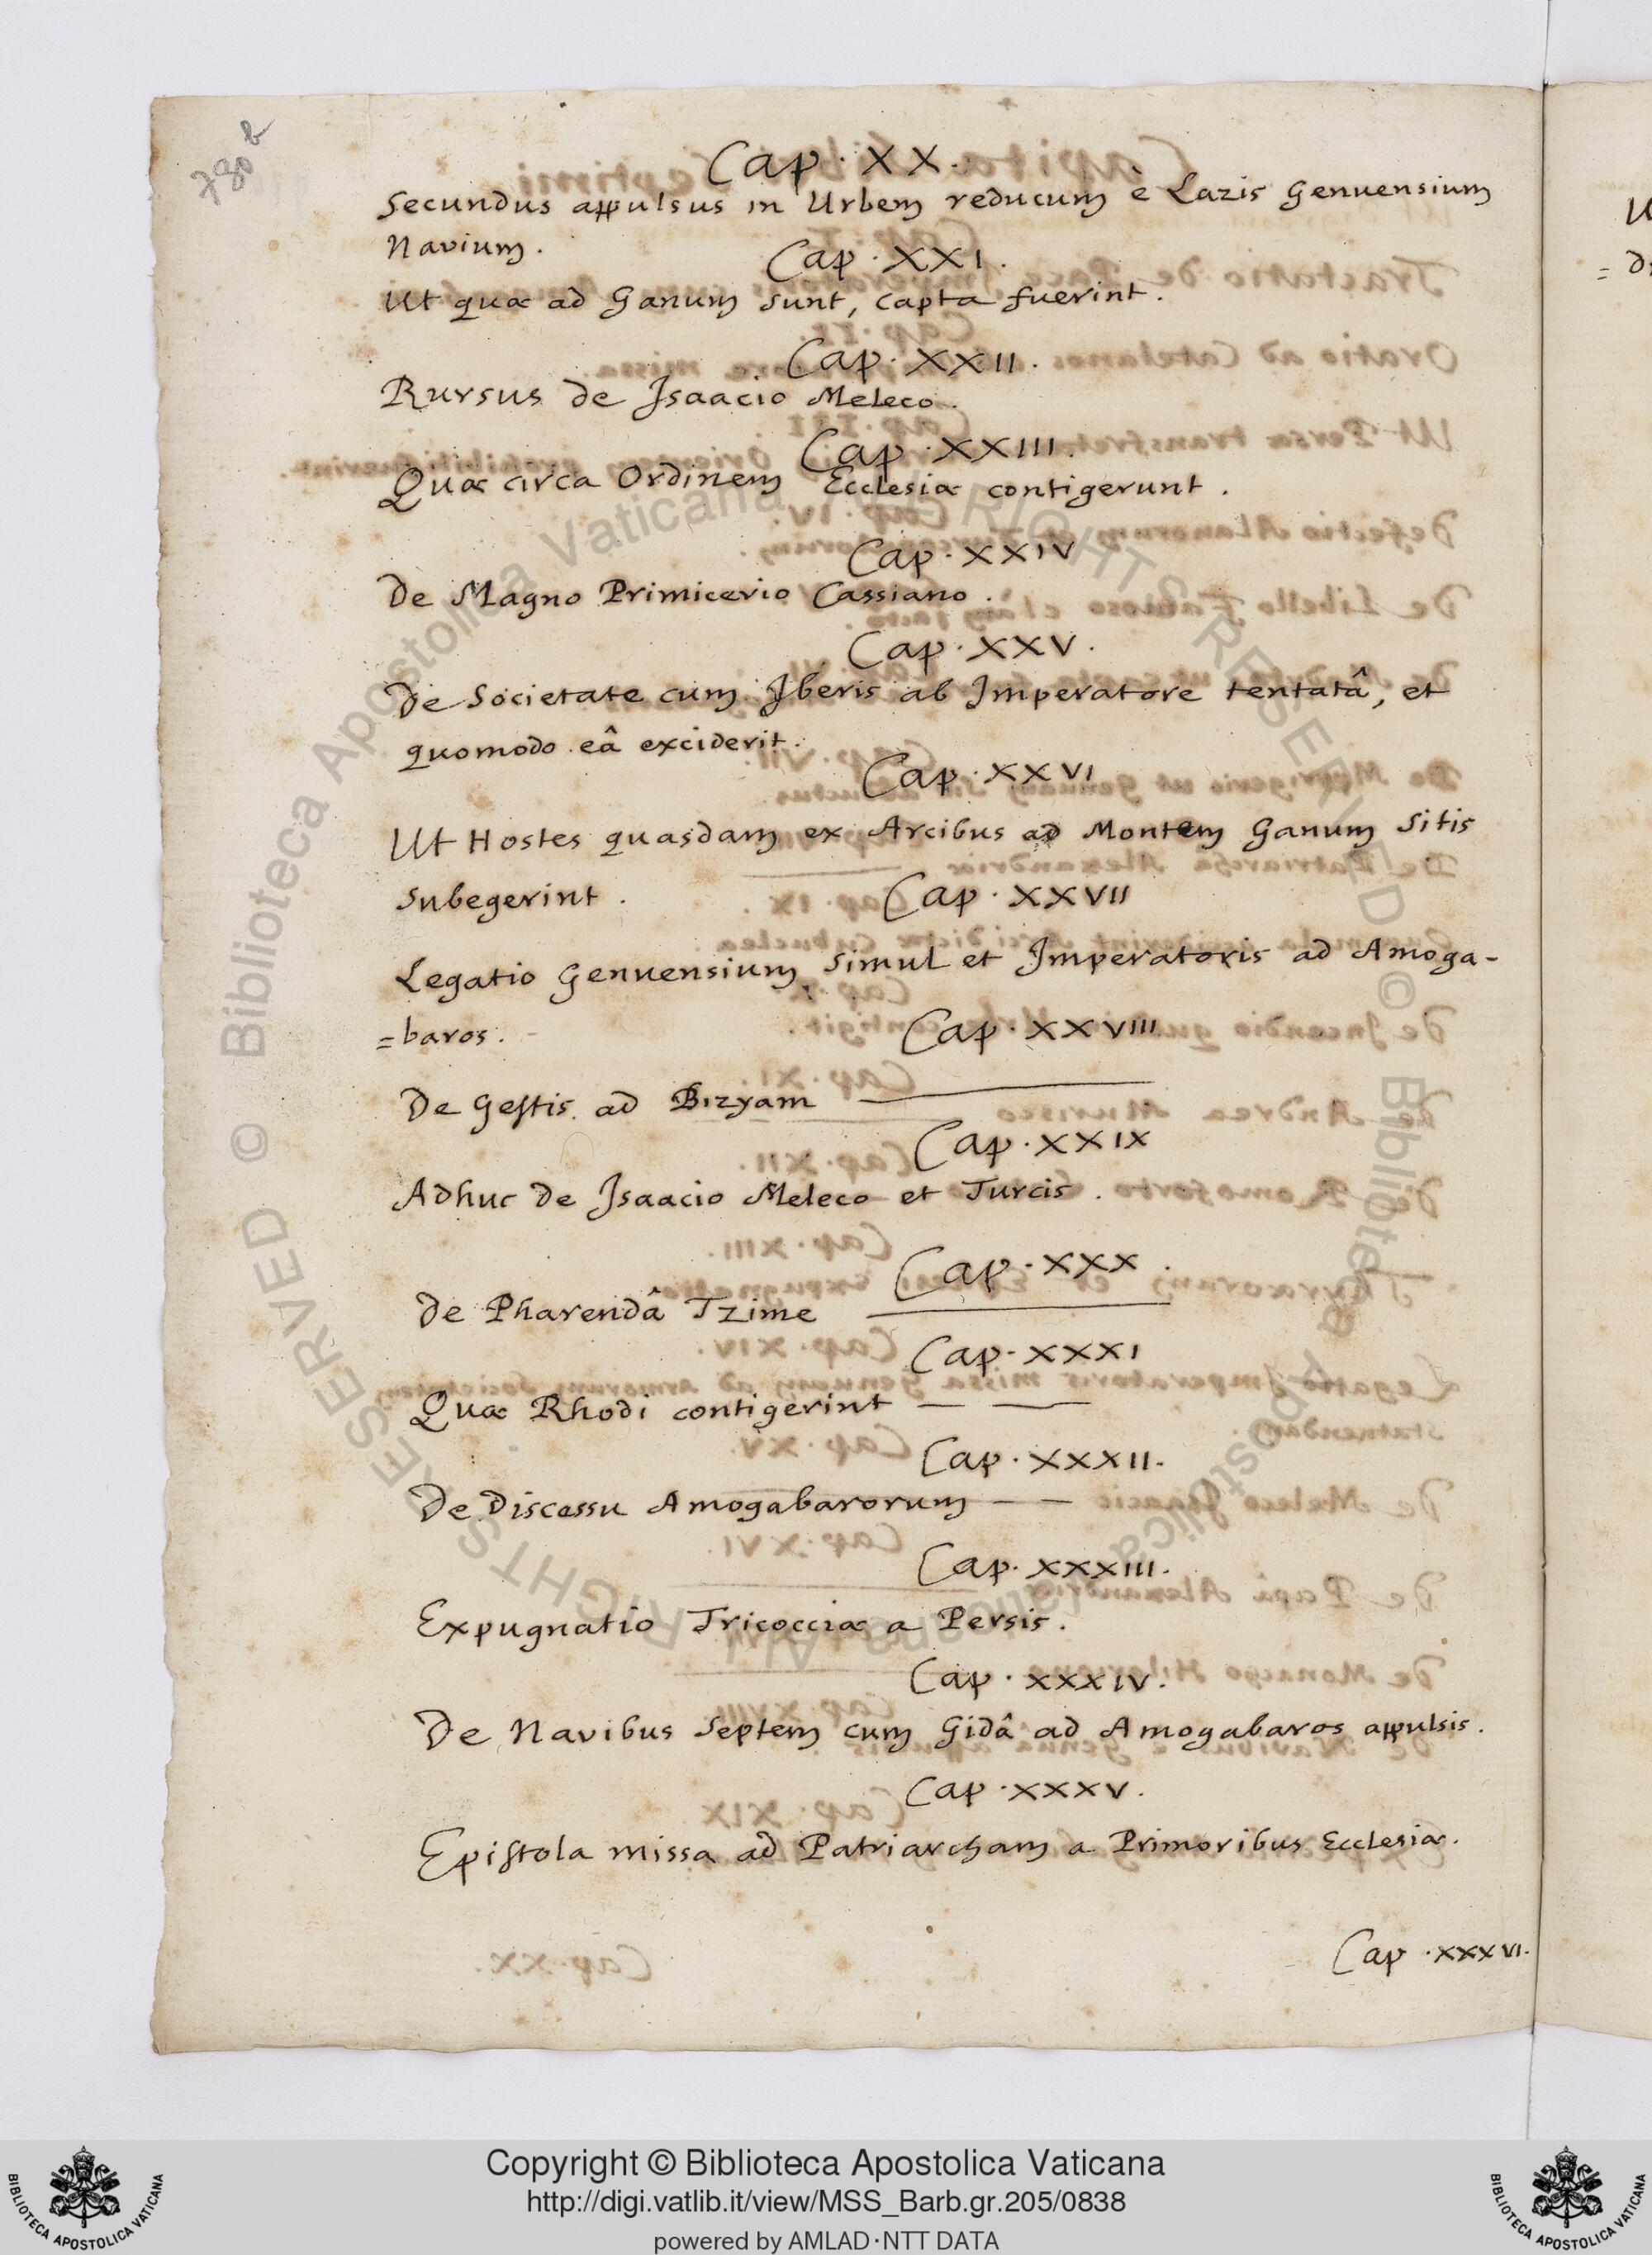 780b
Cap. XX.
Secundus appulsus in Urbem reducum è Lazis Genuensium
Navium.
Cap. XXI.
Ut quæ ad Ganum sunt, capta fuerint.
Cap. XXII.
Rursus de Isaacio Meleco.
Cap. XXIII.
Quæ circa Ordinem Ecclesiæ contigerunt.
Cap. XXIV
De Magno Primicerio Cassiano.
Cap. XXV.
De Societate cum Iberis ab Imperatore tentatâ, et
quomodo eâ exciderit.
Cap. XXVI
Ut Hostes quasdam ex Arcibus ad Montem Ganum sitis
subegerint.
Cap. XXVII
Legatio Genuensium simul et Imperatoris ad Amoga-
=baros.
Cap. XXVIII
De Gestis ad Bizyam
Cap. XXIX
Adhuc de Isaacio Meleco et Turcis.
Cap. XXX.
De Pharendâ Tzime
Cap. XXXI
Quæ Rhodi contigerint
Cap. XXXII.
De Discessu Amogabarorum
Cap. XXXIII.
Expugnatio Tricocciæ a Persis.
Cap. XXXIV.
De Navibus septem cum Gidâ ad Amogabaros appulsis.
Cap. XXXV.
Epistola missa ad Patriarcham a Primoribus Ecclesiæ.
Cap. XXXVI.
© Biblioteca Apostolica Vaticana ALL RIGHTS RESERVED © Biblioteca Apostolica Vaticana ALL RIGHTS RESERVED
Copyright © Biblioteca Apostolica Vaticana
http://digi.vatlib.it/view/MSS_Barb.gr.205/0838
powered by AMLAD·NTT DATA
BIBLIOTECA APOSTOLICA VATICANA
BIBLIOTECA APOSTOLICA VATICANA